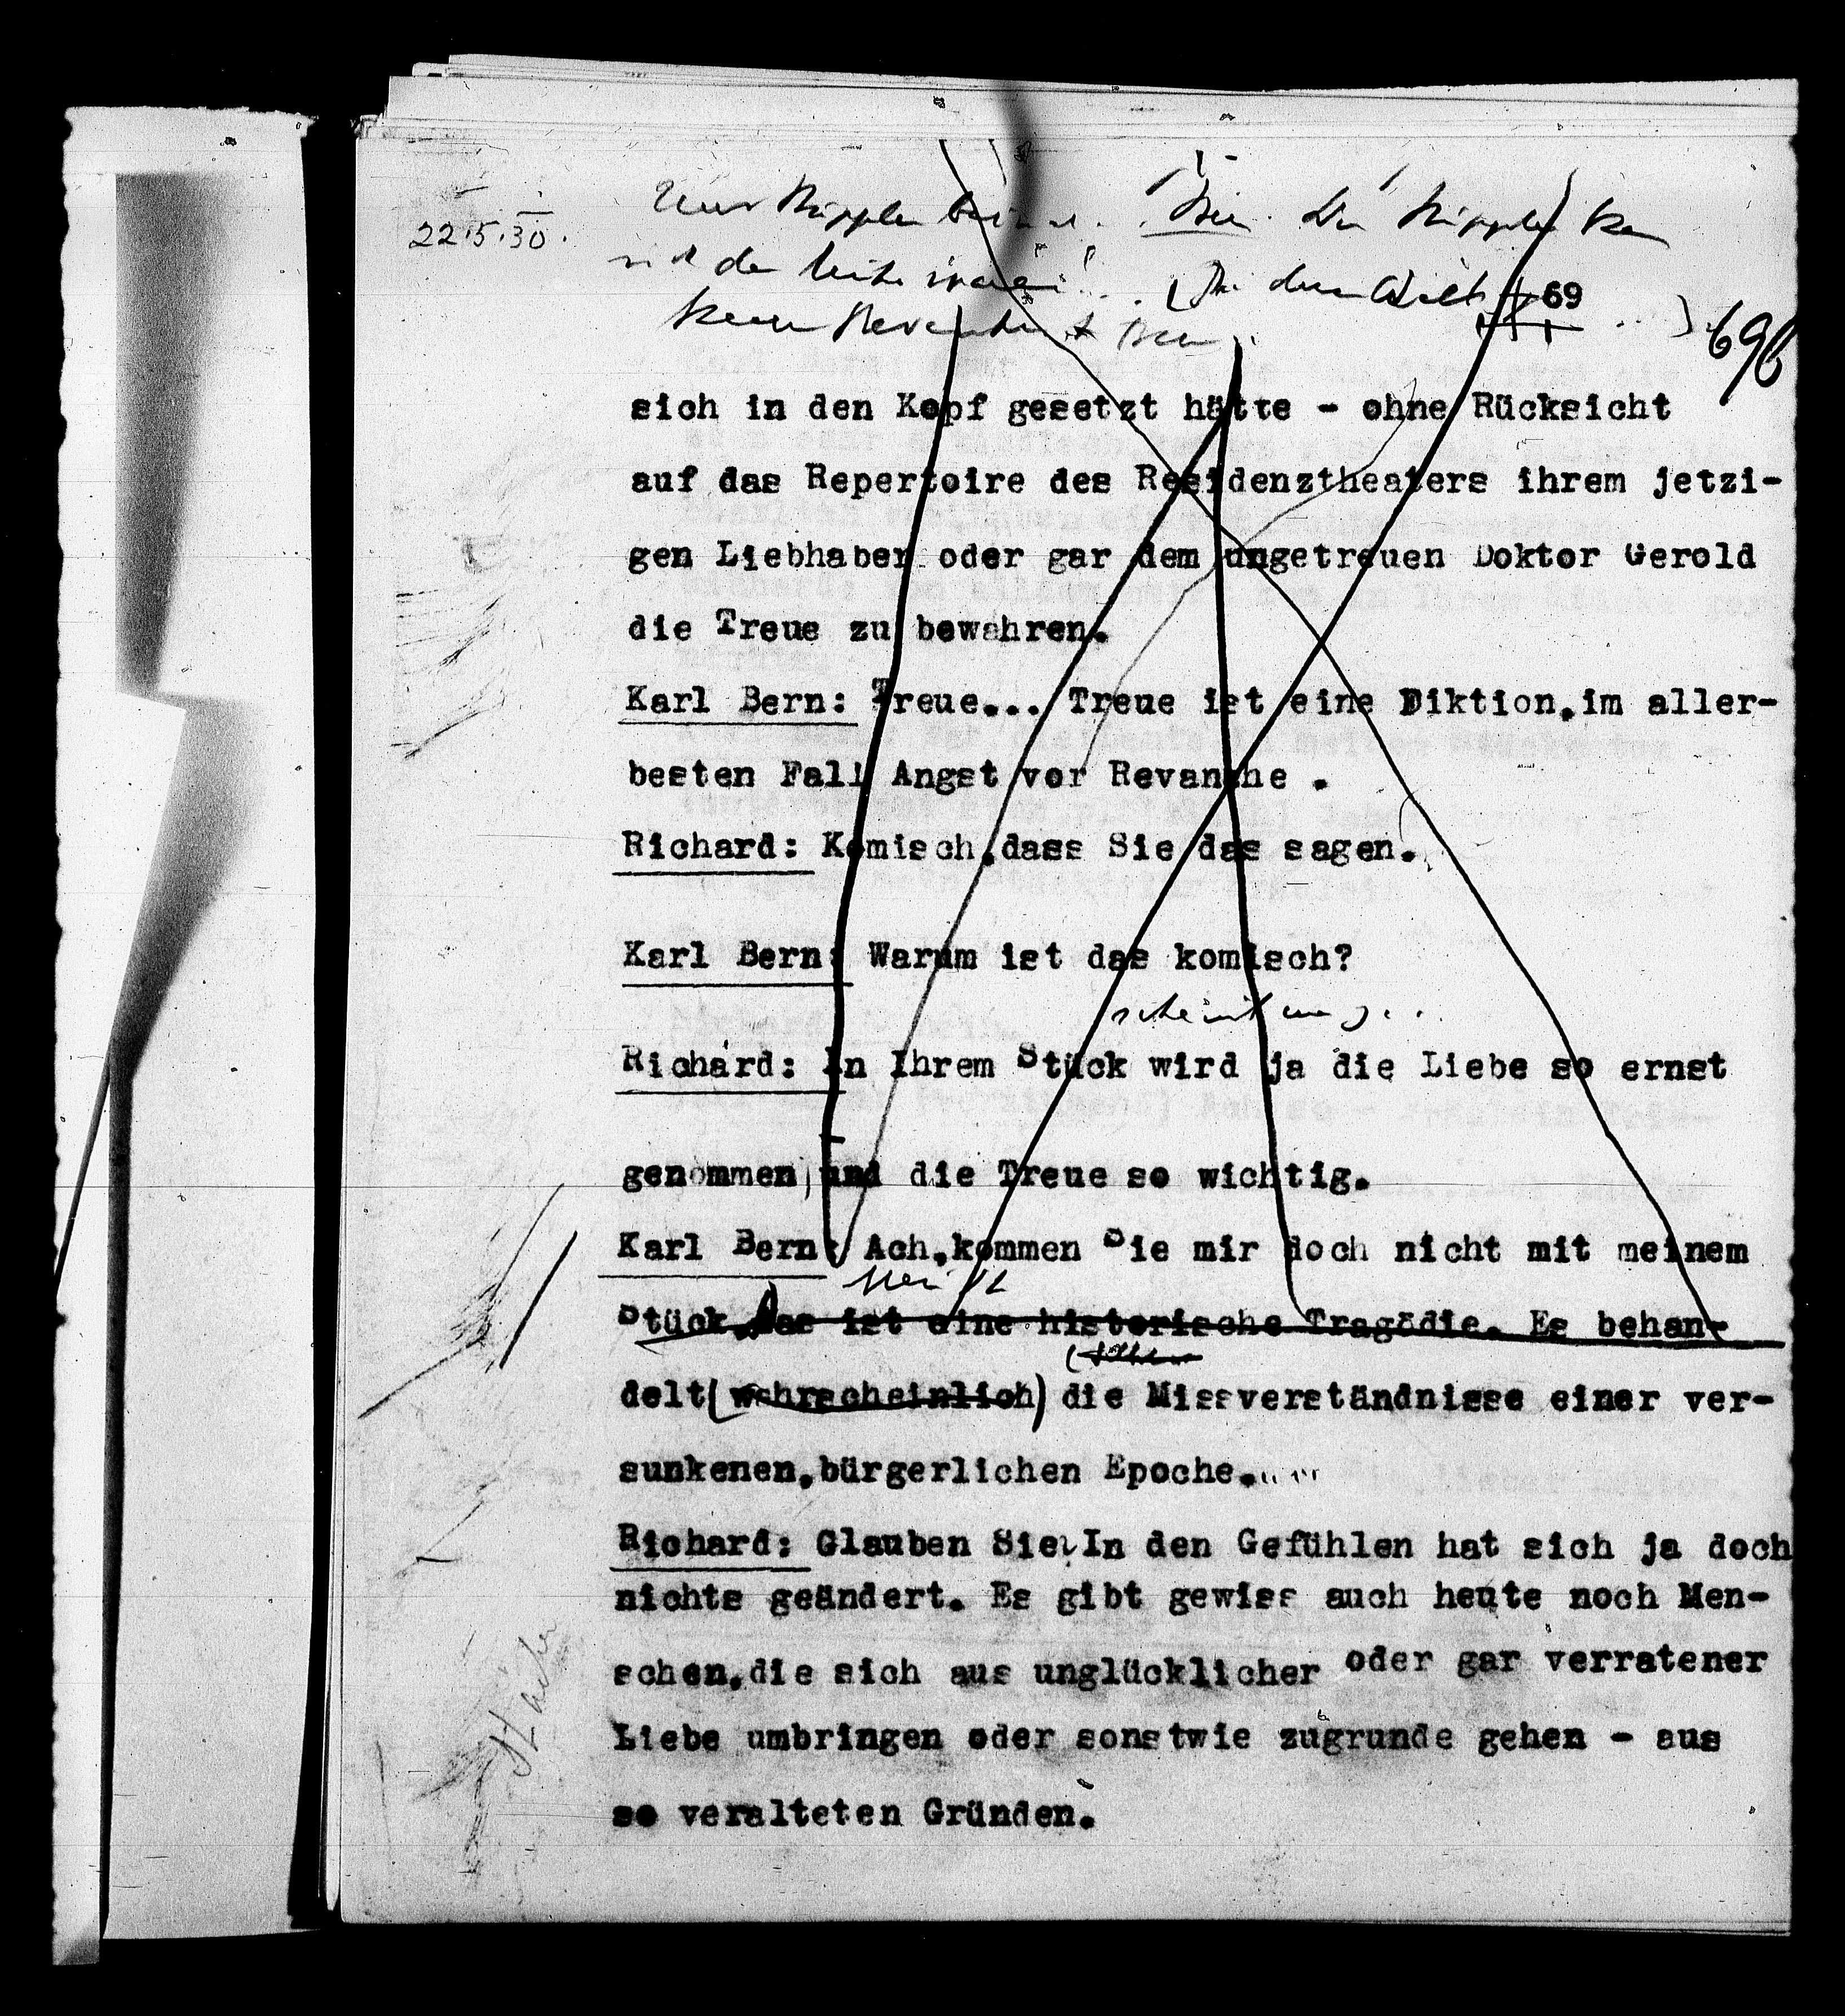 22.5.30.
69
696
sich in den Kopf gesetzt hätte - ohne Rücksicht
auf das Repertoire des Residenztheaters ihrem jetzi-
gen Liebhaber oder gar dem ungetreuen Doktor Gerold
die Treue zu bewahren.
Karl Bern: Treue... Treue ist eine Diktion, im aller-
besten Fall Angst vor Revanche .
Richard: Komisch, dass Sie das sagen.
Karl Bern: Warum ist das komisch?
scheint mir...
Richard: In Ihrem Stück wird ja die Liebe so ernst
genommen, und die Treue so wichtig.
Karl Bern: Ach, kommen Sie mir doch nicht mit meinem
Stück. Das ist eine historische Tragödie. Es behan-
delt (wahrscheinlich) die Missverständnisse einer ver-
sunkenen, bürgerlichen Epoche.
Richard: Glauben Sie? In den Gefühlen hat sich ja doch
nichts geändert. Es gibt gewiss auch heute noch Men-
schen, die sich aus unglücklicher oder gar verratener
Liebe umbringen oder sonstwie zugrunde gehen - aus
so veralteten Gründen.